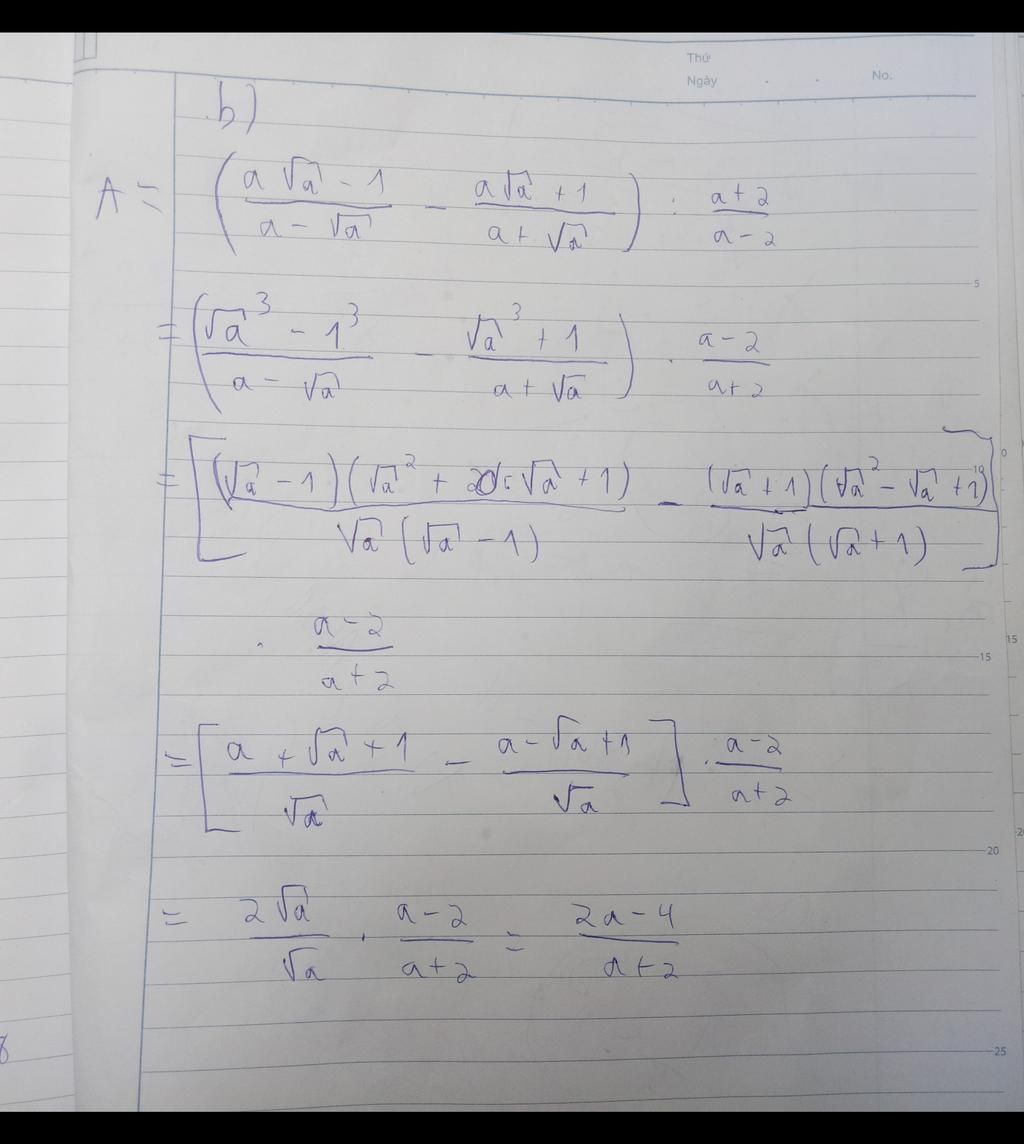 Thứ
Ngày . . No.
b)
A = ( (a√a - 1)/(a - √a) - (a√a + 1)/(a + √a) ) : (a + 2)/(a - 2)
5
= ( (√a³ - 1³)/(a - √a) - (√a³ + 1)/(a + √a) ) . (a - 2)/(a + 2)
0
10
= [ (√a - 1)(√a² + √a + 1)/(√a(√a - 1)) - (√a + 1)(√a² - √a + 1)/(√a(√a + 1)) ]
. (a - 2)/(a + 2)
15
15
= [ (a + √a + 1)/√a - (a - √a + 1)/√a ] . (a - 2)/(a + 2)
20
2
= 2√a/√a . (a - 2)/(a + 2) = (2a - 4)/(a + 2)
25